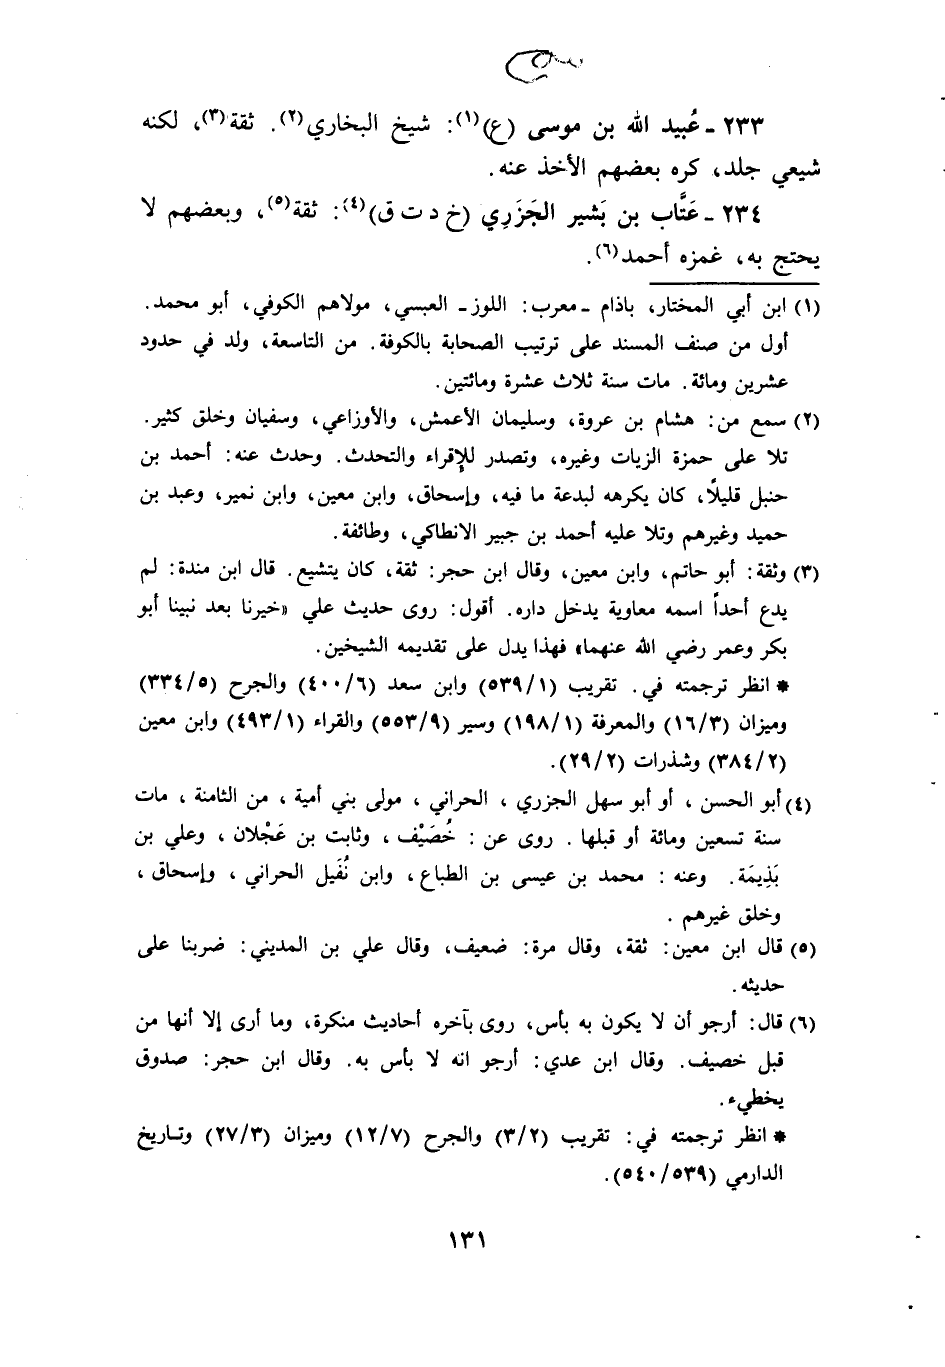 ٢٣٣ - عُبيد الله بن موسى (ع)(١): شيخ البخاري(٢). ثقة(٣)، لكنه
شيعي جلد، كره بعضهم الأخذ عنه.
٢٣٤ - عَتَّاب بن بَشير الجَزَرِي (خ د ت ق)(٤): ثقة(٥)، وبعضهم لا
يحتج به، غمزه أحمد(٦).
(١) ابن أبي المختار، باذام - معرب: اللوز - العبسي، مولاهم الكوفي، أبو محمد.
أول من صنف المسند على ترتيب الصحابة بالكوفة. من التاسعة، ولد في حدود
عشرين ومائة. مات سنة ثلاث عشرة ومائتين.
(٢) سمع من: هشام بن عروة، وسليمان الأعمش، والأوزاعي، وسفيان وخلق كثير.
تلا على حمزة الزيات وغيره، وتصدر للإقراء والتحدث. وحدث عنه: أحمد بن
حنبل قليلًا، كان يكرهه لبدعة ما فيه، وإسحاق، وابن معين، وابن نمير، وعبد بن
حميد وغيرهم وتلا عليه أحمد بن جبير الانطاكي، وطائفة.
(٣) وثقة: أبو حاتم، وابن معين، وقال ابن حجر: ثقة، كان يتشيع. قال ابن مندة: لم
يدع أحداً اسمه معاوية يدخل داره. أقول: روى حديث علي «خيرنا بعد نبينا أبو
بكر وعمر رضي الله عنهما» فهذا يدل على تقديمه الشيخين.
* انظر ترجمته في. تقريب (١/٥٣٩) وابن سعد (٦/٤٠٠) والجرح (٥/٣٣٤)
وميزان (٣/١٦) والمعرفة (١/١٩٨) وسير (٩/٥٥٣) والقراء (١/٤٩٣) وابن معين
(٢/٣٨٤) وشذرات (٢/٢٩).
(٤) أبو الحسن ، أو أبو سهل الجزري ، الحراني ، مولى بني أمية ، من الثامنة ، مات
سنة تسعين ومائة أو قبلها . روى عن : خُصَيْف ، وثابت بن عَجْلان ، وعلي بن
بَذِيمَة. وعنه : محمد بن عيسى بن الطباع، وابن نُفَيل الحراني ، وإسحاق ،
وخلق غيرهم .
(٥) قال ابن معين: ثقة، وقال مرة: ضعيف، وقال علي بن المديني: ضربنا على
حديثه.
(٦) قال: أرجو أن لا يكون به بأس، روى بآخره أحاديث منكرة، وما أرى إلا أنها من
قبل خصيف. وقال ابن عدي: أرجو انه لا بأس به. وقال ابن حجر: صدوق
يخطيء.
* انظر ترجمته في: تقريب (٣/٢) والجرح (١٢/٧) وميزان (٢٧/٣) وتاريخ
الدارمي (٥٤٠/٥٣٩).
١٣١